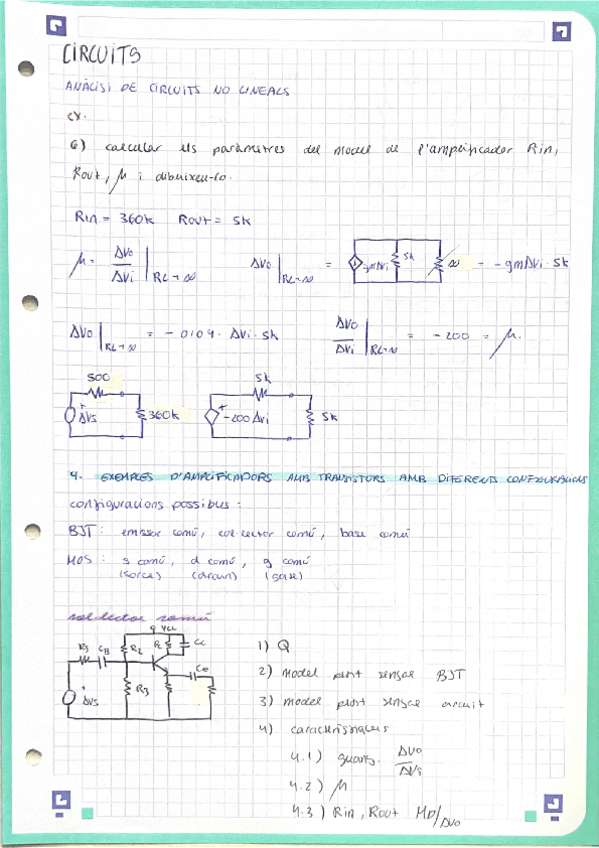 CIRCUITS
ANÀLISI DE CIRCUITS NO LINEALS
ex.
6) calcular els paràmetres del model de l'amplificador Rin,
Rout, μ i dibuixeu-lo.
Rin = 360k Rout = 5k
μ = ΔVo/ΔVi | RL→∞ ΔVo | RL→∞ = gmΔVi 5k ∞ = -gmΔVi · 5k
ΔVo | RL→∞ = -0'04 · ΔVi · 5k ΔVo/ΔVi | RL→∞ = -200 = μ.
500 5k
ΔVs 360k -200 ΔVi 5k
4. EXEMPLES D'AMPLIFICADORS AMB TRANSISTORS AMB DIFERENTS CONFIGURACIONS
configuracions possibles:
BJT: emissor comú, col·lector comú, base comú
MOS: s comú, d comú, g comú
(source) (drain) (gate)
col·lector comú
Vcc
RS CB R2 RC CC
CE
ΔVs R3
1) Q
2) Model petit senyal BJT
3) model petit senyal circuit
4) característiques
4.1) guany. ΔVo/ΔVs
4.2) μ
4.3) Rin, Rout MD/ΔVo